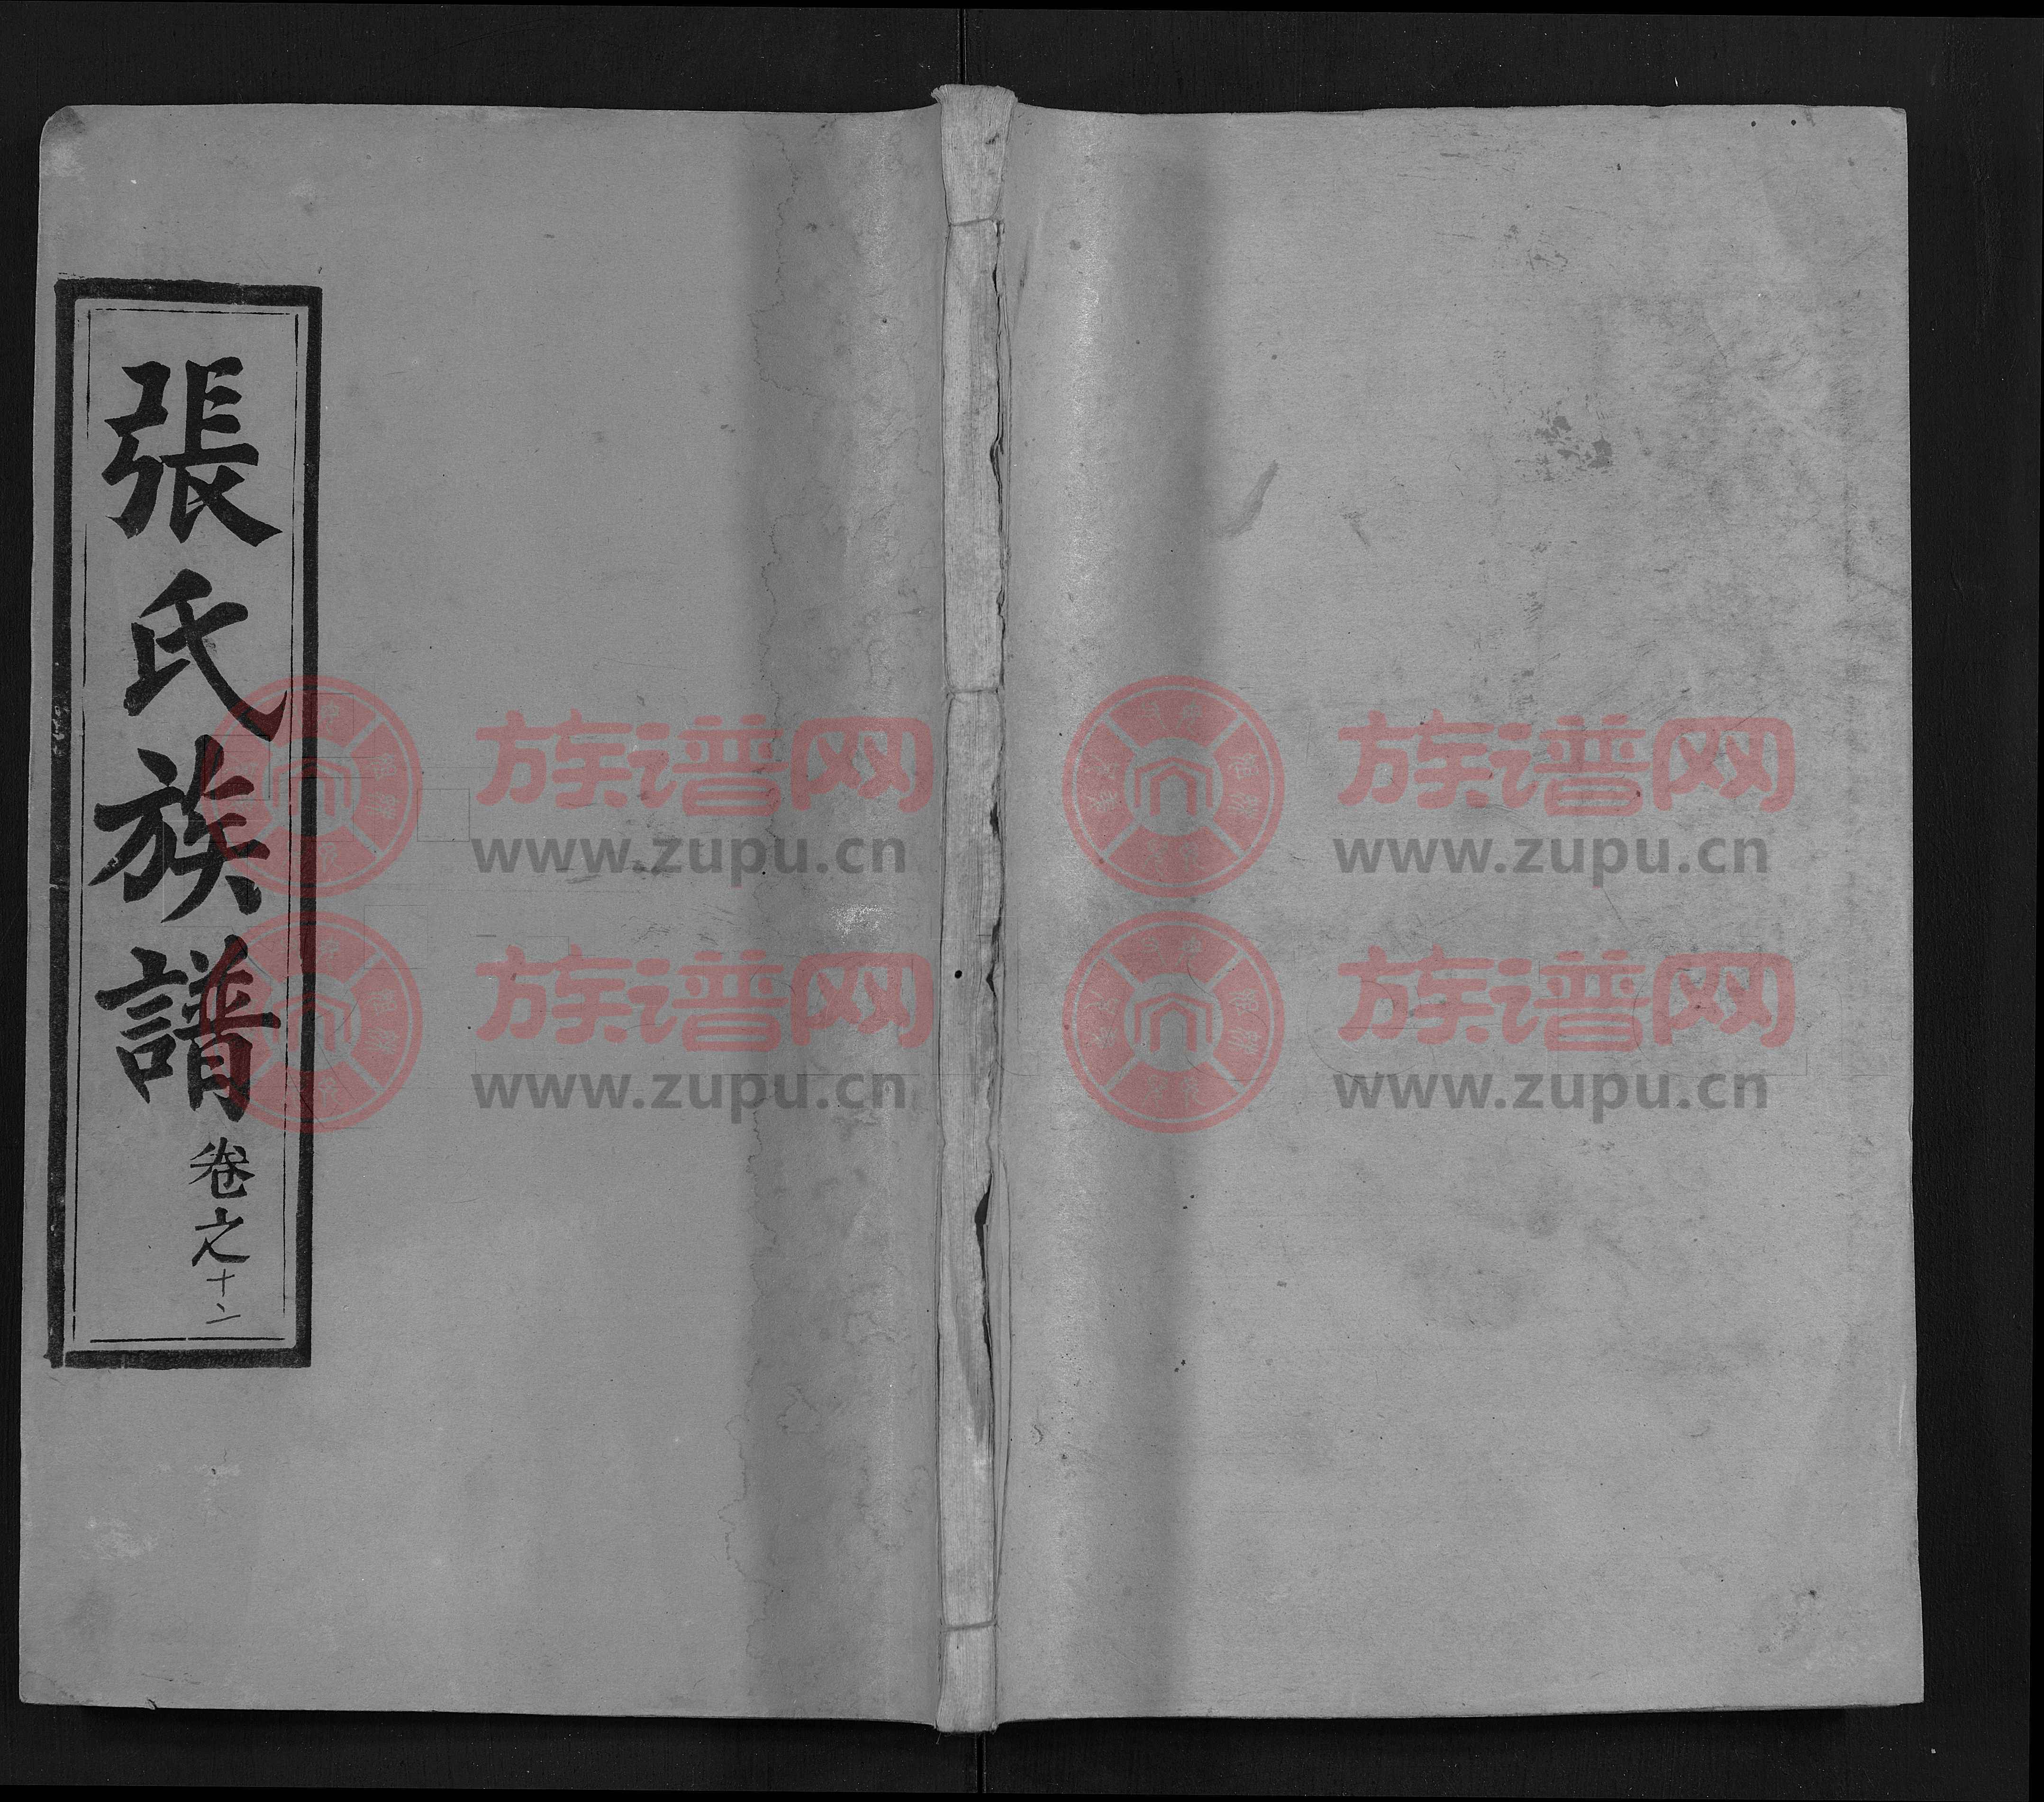 張氏族譜
卷之十二
族谱网
www.zupu.cn
族谱网
www.zupu.cn
族谱网
www.zupu.cn
族谱网
www.zupu.cn